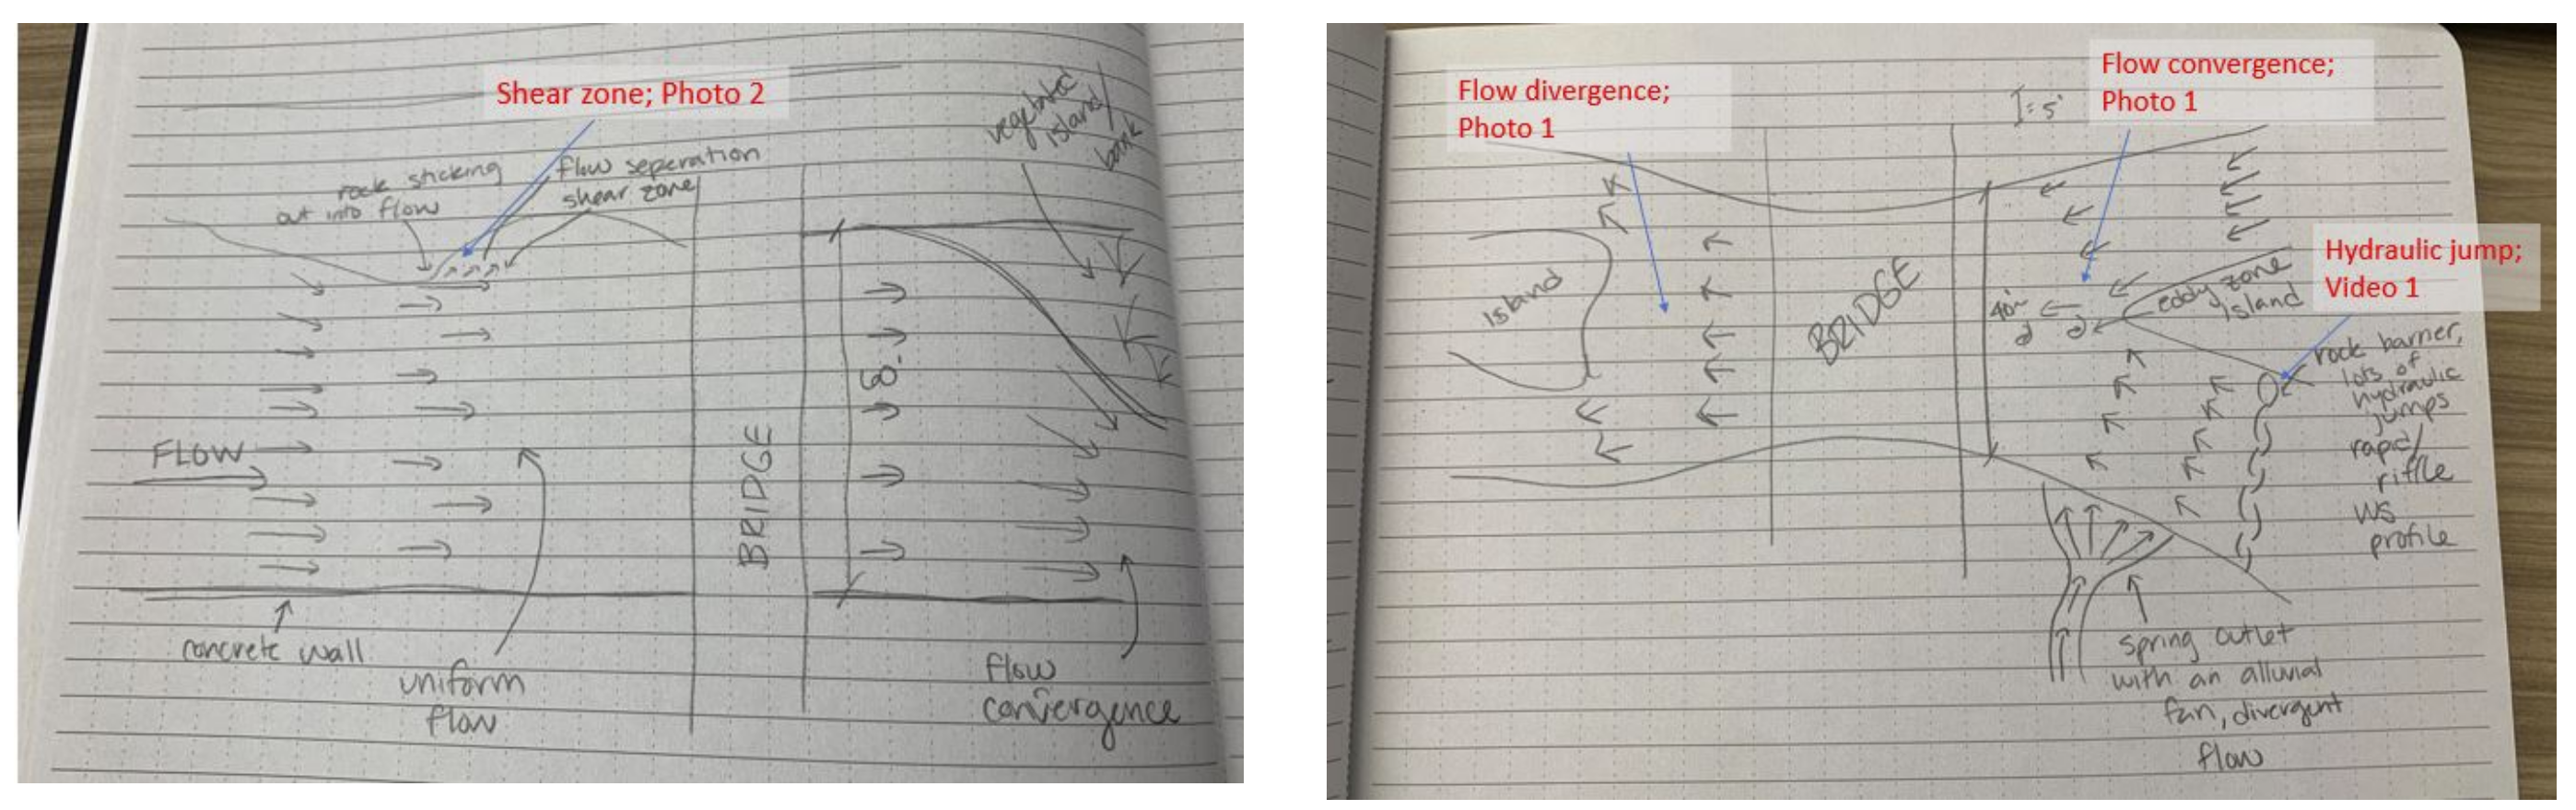 Shear zone; Photo 2
vegetated
island/
bank
rock sticking
out into flow
flow seperation
shear zone
FLOW
BRIDGE
60'
concrete wall
uniform
flow
flow
convergence
Flow divergence;
Photo 1
Flow convergence;
Photo 1
= 5'
Hydraulic jump;
Video 1
island
BRIDGE
40'
eddy zone
island
rock barrier,
lots of
hydraulic
jumps
rapid/
riffle
WS
profile
spring outlet
with an alluvial
fan, divergent
flow